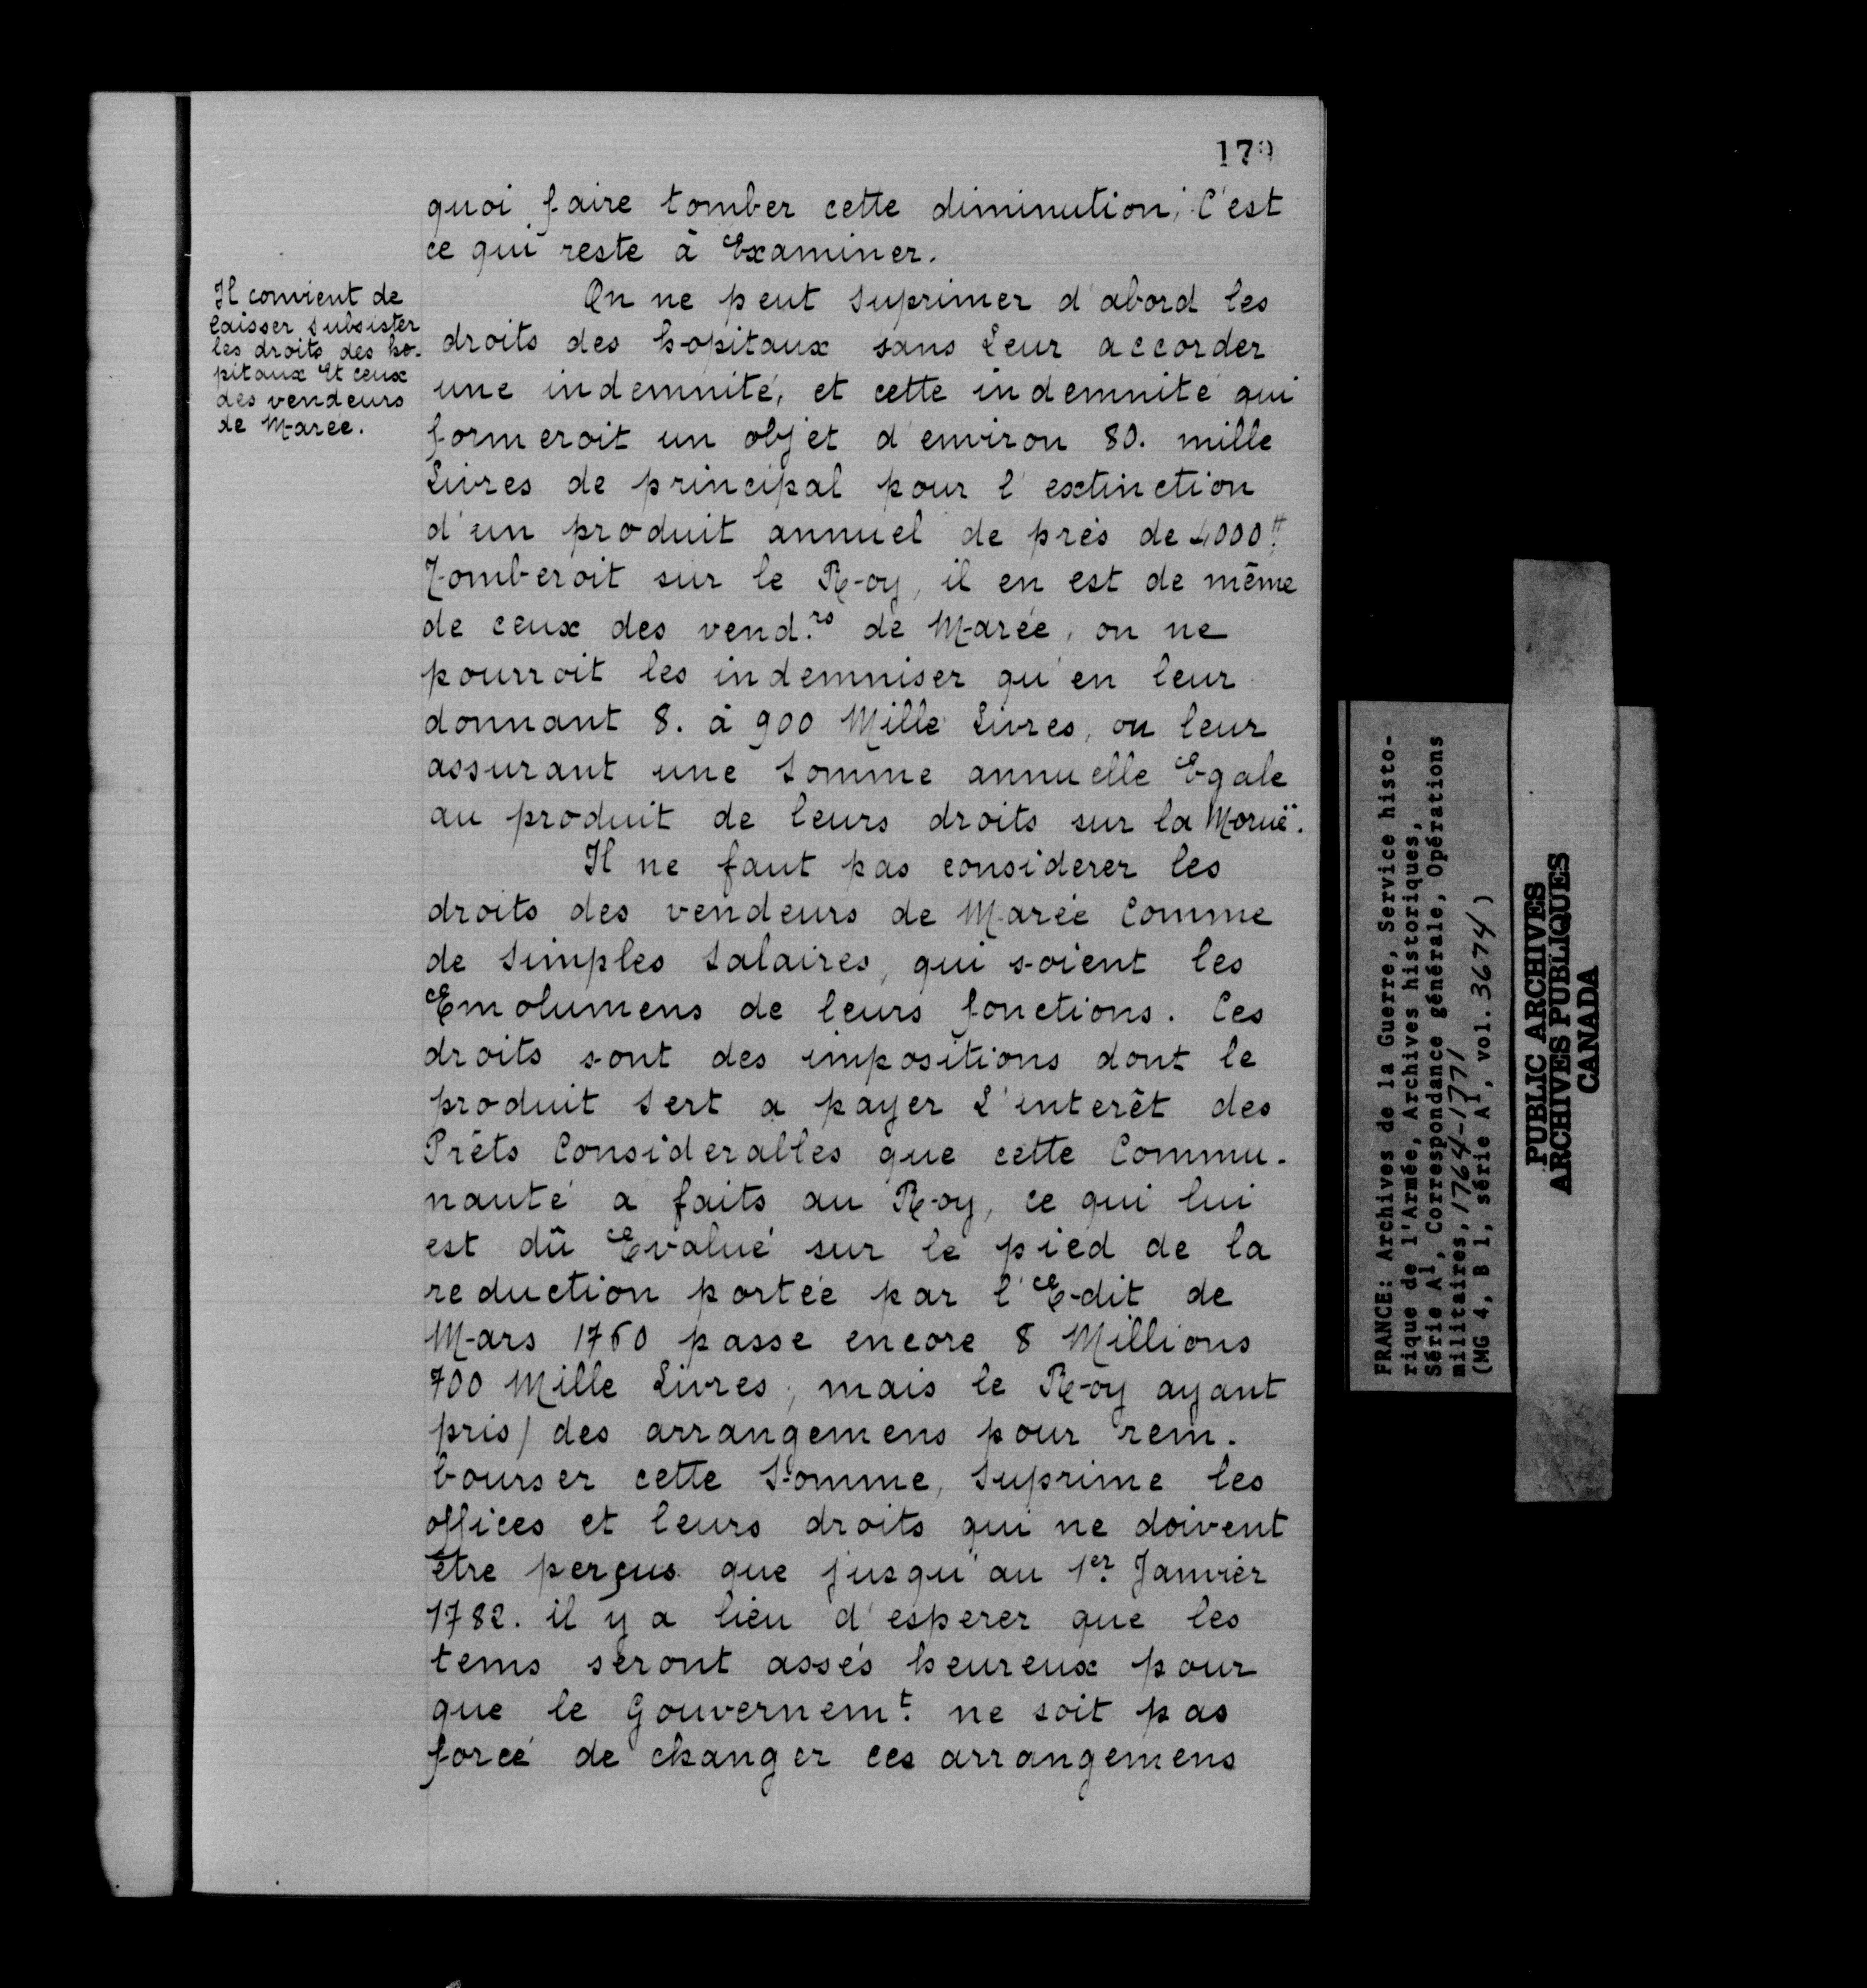 179
quoi faire tomber cette diminution; C'est
ce qui reste à Examiner.
Il convient de
laisser subsister
les droits des ho-
pitaux Et ceux
des vendeurs
de Marée.
On ne peut suprimer d'abord les
droits des hopitaux sans Leur accorder
une indemnité, et cette indemnité qui
formeroit un objet d'environ 80. mille
Livres de principal pour l'extinction
d'un produit annuel de prés de 4000.tt
Tomberoit sur le Roy, il en est de même
de ceux des vend.rs de Marée, on ne
pourroit les indemniser qu'en leur
donnant 8. à 900 Mille Livres, ou leur
assurant une Somme annuelle Egale
au produit de leurs droits sur la Moruë.
Il ne faut pas considerer les
droits des vendeurs de Marée Comme
de Simples Salaires, qui soient les
Emolumens de leurs fonctions. Ces
droits sont des impositions dont le
produit Sert a payer L'interêt des
Prêts Considerables que cette Commu-
nauté a faits au Roy, ce qui lui
est dû Evalué sur le pied de la
reduction portée par l'Edit de
Mars 1760 passe encore 8 Millions
700 Mille Livres, mais le Roy ayant
pris/ des arrangemens pour rem-
bourser cette Somme, Suprime les
offices et leurs droits qui ne doivent
être perçus que jusqu'au 1er Janvier
1782. il y a lieu d'esperer que les
tems seront assés heureux pour
que le Gouvernem.t ne soit pas
forcé de changer ces arrangemens
FRANCE: Archives de la Guerre, Service histo-
rique de l'Armée, Archives historiques,
Série A1, Correspondance générale, Opérations
militaires, 1764-1771
(MG 4, B 1, série A1, vol. 3674)
PUBLIC ARCHIVES
ARCHIVES PUBLIQUES
CANADA